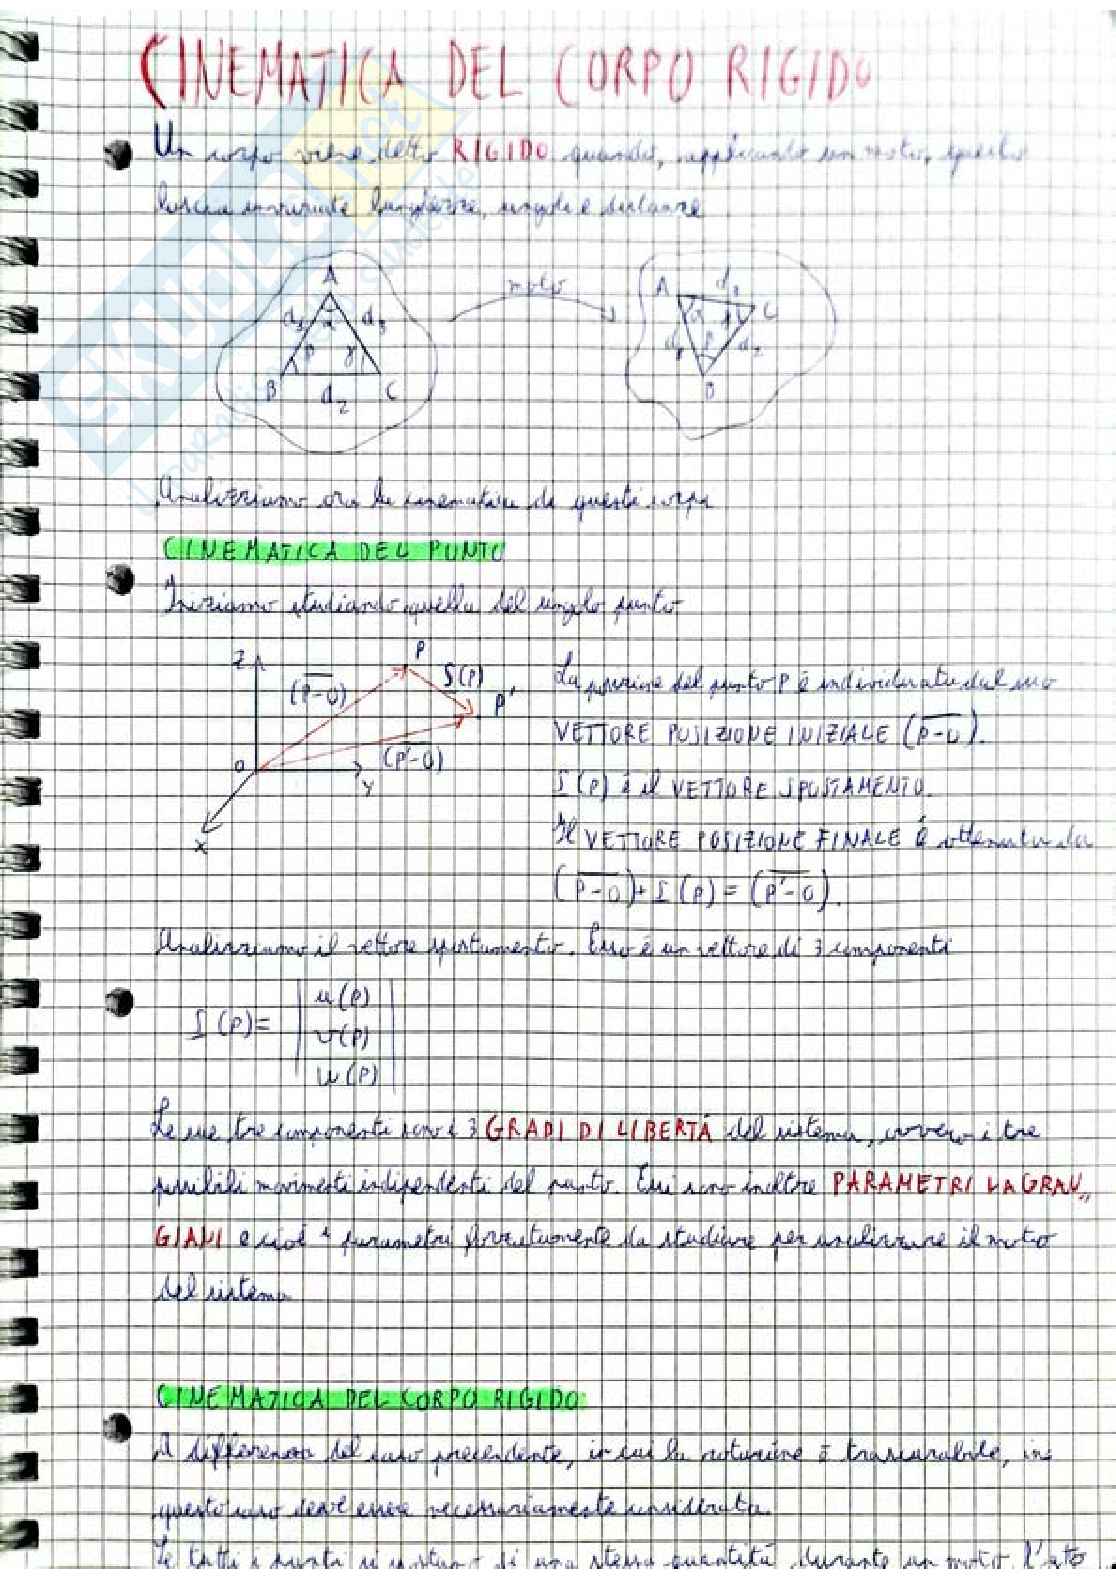 CINEMATICA DEL CORPO RIGIDO
Un corpo viene detto RIGIDO quando, applicando un moto, questo
lascia invariate lunghezze, angoli e distanze
A
d1
α
d3
β
γ
B
d2
C
moto
A
d3
C
α
γ
d1
β
d2
B
Analizziamo ora la cinematica di questi corpi
CINEMATICA DEL PUNTO
Iniziamo studiando quella del singolo punto
Z
P
(P-O)
S(P)
P'
O
(P'-O)
Y
X
La posizione del punto P è individuata dal suo
VETTORE POSIZIONE INIZIALE (P-O).
S(P) è il VETTORE SPOSTAMENTO.
Il VETTORE POSIZIONE FINALE è ottenuto da
(P-O)+S(P)=(P'-O).
Analizziamo il vettore spostamento. Esso è un vettore di 3 componenti
S(P)=
u(P)
v(P)
w(P)
Le sue tre componenti sono i 3 GRADI DI LIBERTÀ del sistema, ovvero i tre
possibili movimenti indipendenti del punto. Essi sono inoltre PARAMETRI LAGRAN
GIANI e cioè i parametri da studiare per analizzare il moto
del sistema
CINEMATICA DEL CORPO RIGIDO
A differenza del caso precedente, in cui la rotazione è trascurabile, in
questo caso deve essere necessariamente considerata.
Se tutti i punti si spostano di una stessa quantità durante un moto, l'atto
SKUOLA.net